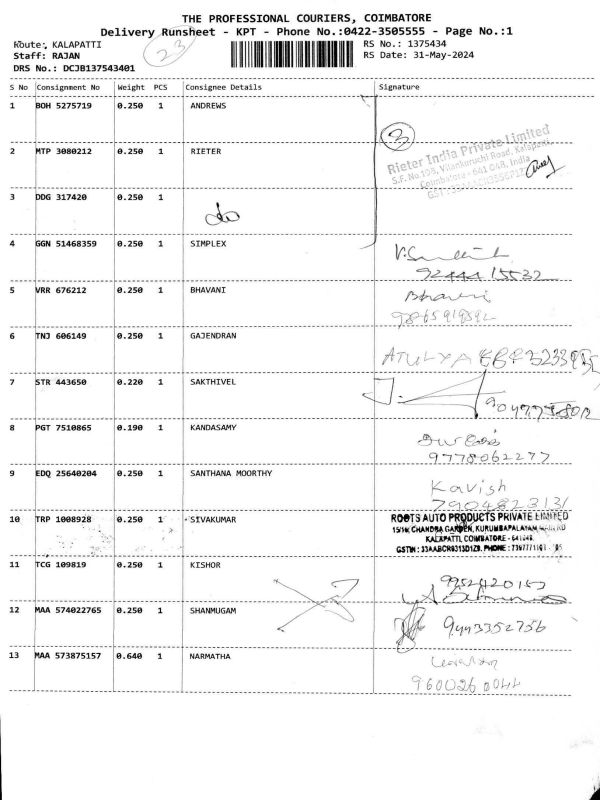 THE PROFESSIONAL COURIERS, COIMBATORE
Delivery Runsheet - KPT - Phone No.:0422-3505555 - Page No.:1
Route: KALAPATTI 23 RS No.: 1375434
Staff: RAJAN RS Date: 31-May-2024
DRS No.: DCJB137543401
S No Consignment No Weight PCS Consignee Details Signature
1 BOH 5275719 0.250 1 ANDREWS
3
2 MTP 3080212 0.250 1 RIETER
Rieter India Private Limited
S.F. No.198, Vilankuruchi Road, Kalapatti,
Coimbatore - 641 048, India
3 DDG 317420 0.250 1
4 GGN 51468359 0.250 1 SIMPLEX
92444 15532
5 VRR 676212 0.250 1 BHAVANI Bhavani
6 TNJ 606149 0.250 1 GAJENDRAN
ATULYA
7 STR 443650 0.220 1 SAKTHIVEL
8 PGT 7510865 0.190 1 KANDASAMY
9778062277
9 EDQ 25640204 0.250 1 SANTHANA MOORTHY Kavish
7904823131
10 TRP 1008928 0.250 1 SIVAKUMAR ROOTS AUTO PRODUCTS PRIVATE LIMITED
CHANDRA GARDEN, KURUMBAPALAYAM
KALAPATTI, COIMBATORE -
11 TCG 109819 0.250 1 KISHOR 9952420153
12 MAA 574022765 0.250 1 SHANMUGAM 9443352756
13 MAA 573875157 0.640 1 NARMATHA
960026 0044